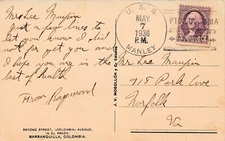 Mrs Lee Maupin
Just a few lines to
let you know I did
not forget you and
hope you are in the
best of health
From Raymond
SECOND STREET, (COLOMBIA) AVENUE,
IN EL PRADO,
BARRANQUILLA, COLOMBIA.
U. S. S.
MAY
7
1936
P.M.
MANLEY
Mrs Lee Maupin
918 Park Ave
Norfolk
Va